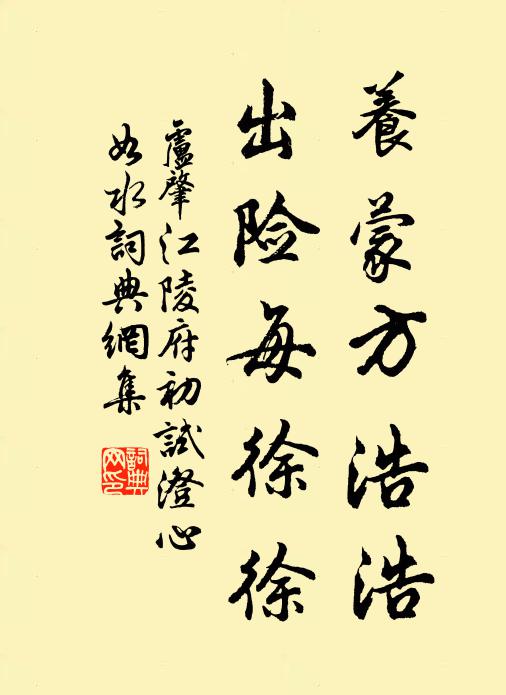 養蒙方浩浩
出险每徐徐
盧肇江陵府初試澄心
如水詞典網集
詞典
网印